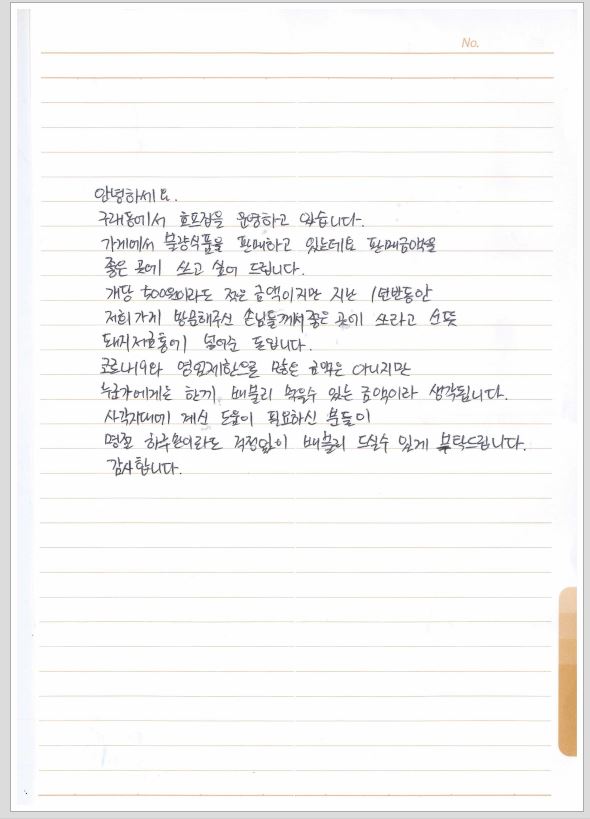 No.
안녕하세요.
구래동에서 호프집을 운영하고 있습니다.
가게에서 불량식품을 판매하고 있는데요 판매금액을
좋은 곳에 쓰고 싶어 드립니다.
개당 500원이라도 적은 금액이지만 지난 1년반동안
저희가게 방문해주신 손님들께서 좋은 곳에 쓰라고 선뜻
돼지저금통에 넣어준 돈입니다.
코로나19와 영업제한으로 많은 금액은 아니지만
누군가에게는 한끼, 배불리 먹을수 있는 금액이라 생각됩니다.
사각지대에 계신 도움이 필요하신 분들이
명절 하루만이라도 걱정없이 배불리 드실수 있게 부탁드립니다.
감사합니다.